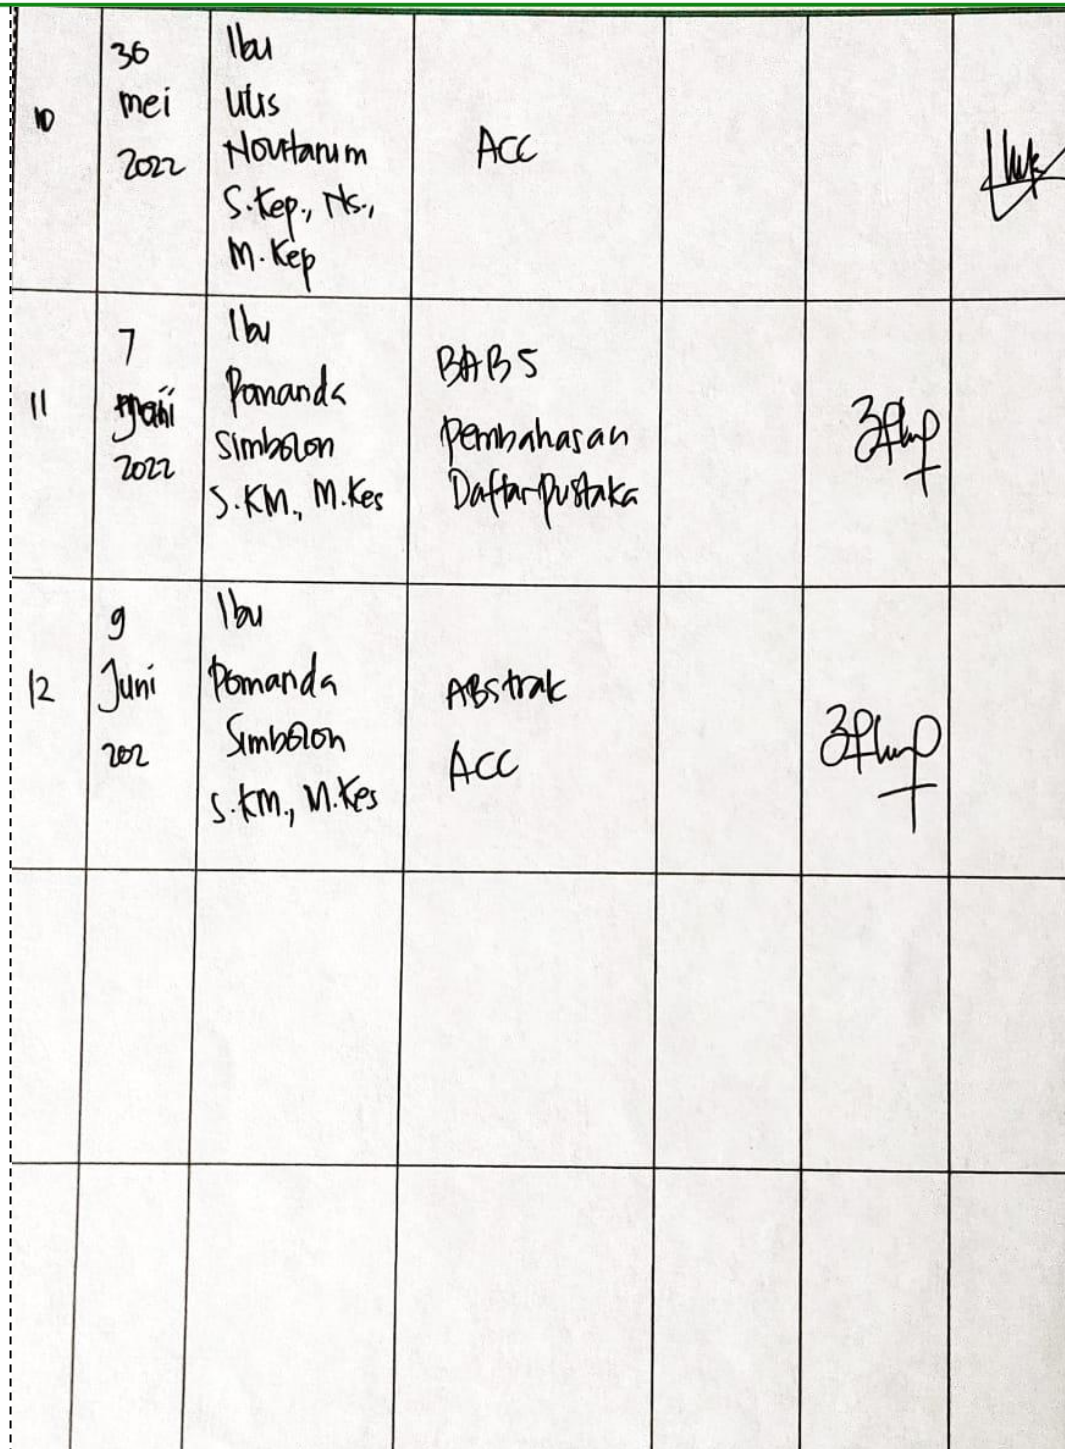 10
30
mei
2022
Ibu
Ulis
Novitarum
S.Kep., Ns.,
M.Kep
ACC
11
7
2022
Ibu
Pomanda
Simbolon
S.KM., M.Kes
BAB 5
Pembahasan
Daftar pustaka
12
9
Juni
202
Ibu
Pomanda
Simbolon
S.KM., M.Kes
ABstrak
ACC